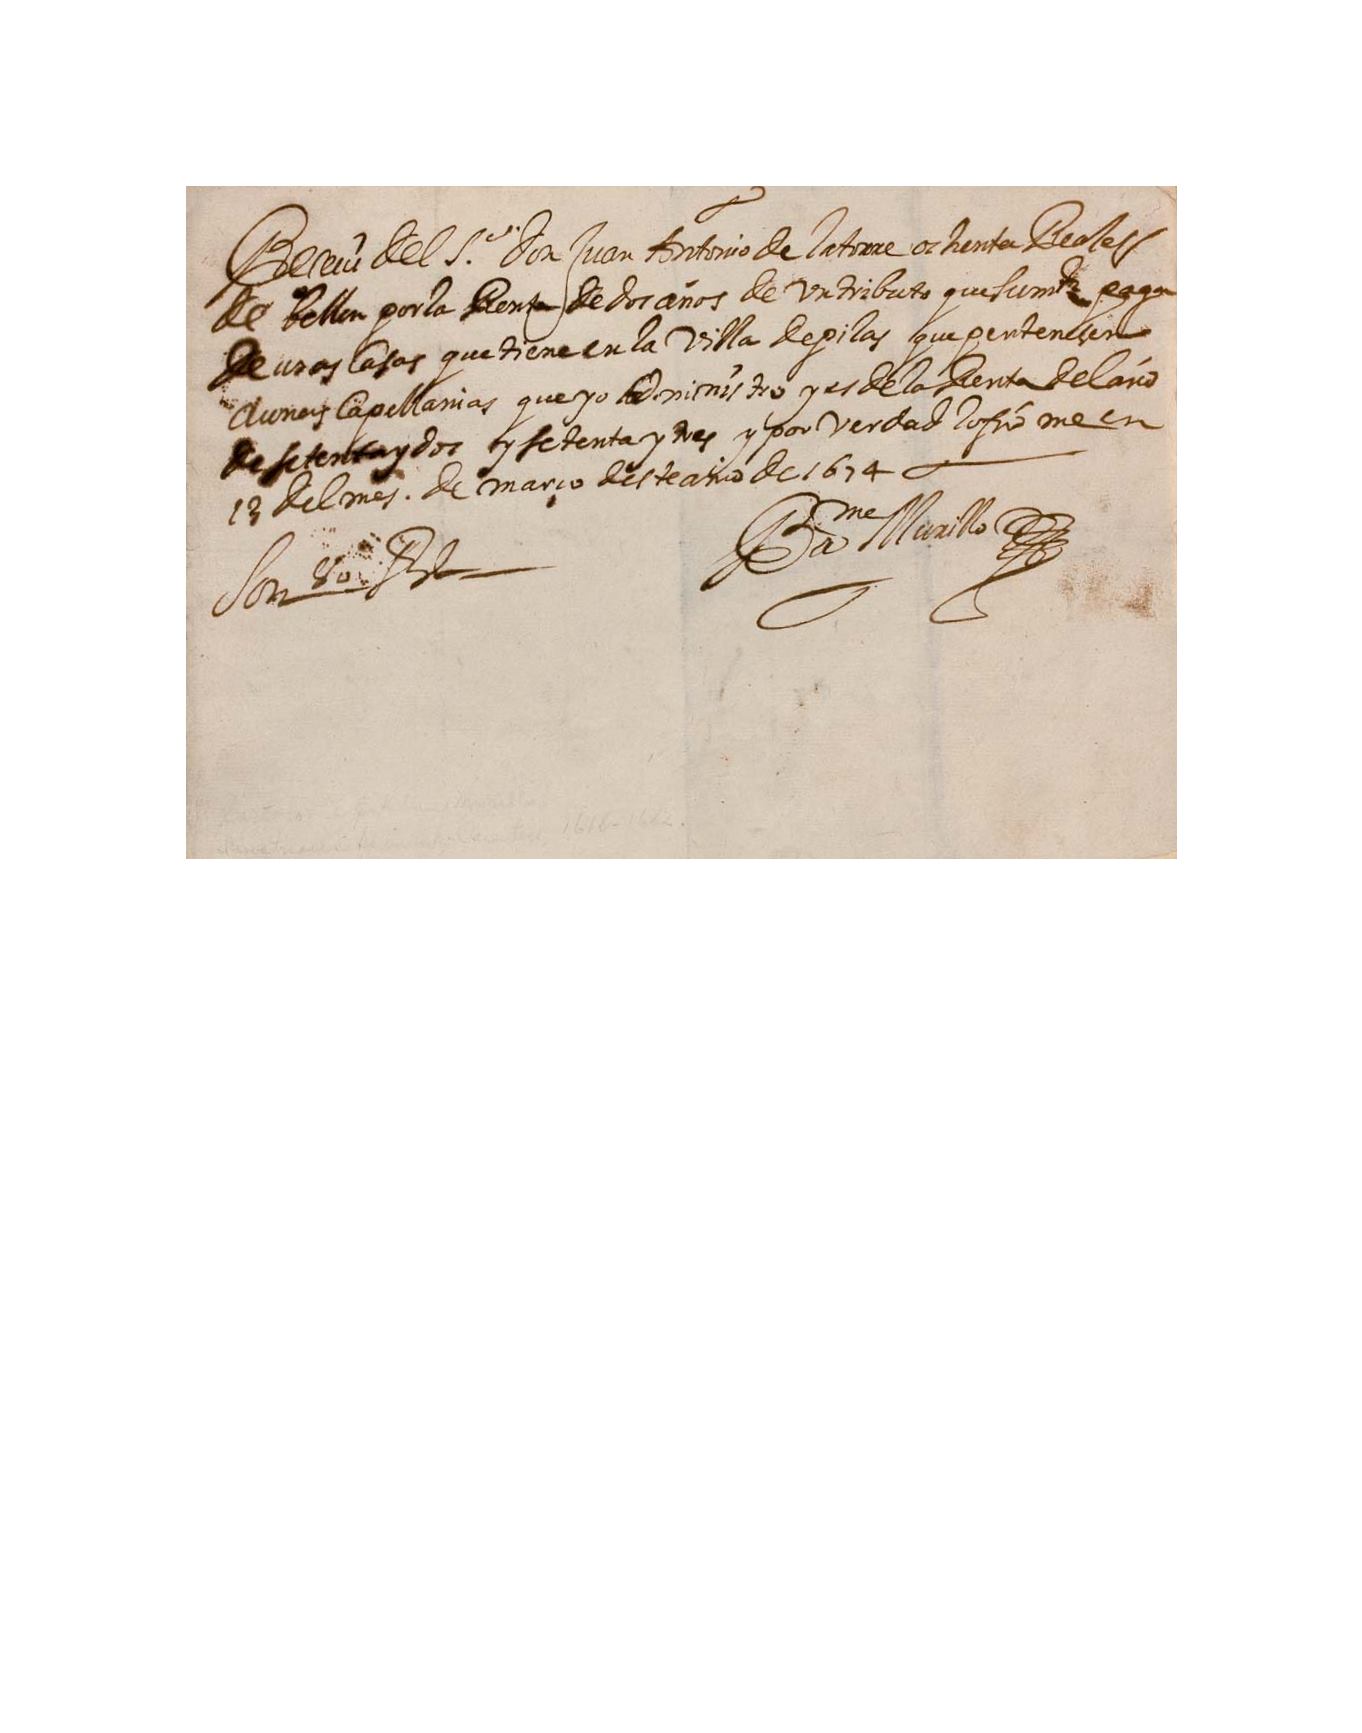 Receui del S.or don Juan Antonio de la torre ochenta Reales
de bellon por la Renta de dos años de un tributo que su md paga
de unas Casas que tiene en la Villa de pilas que pertenesen
a unas Capellanias que yo Administro y es de la Renta del año
de setenta y dos y setenta y tres y por verdad lo firme en
13 del mes. de março deste año de 1674
Bme Murillo
Son 80 Rs
1618-1682.